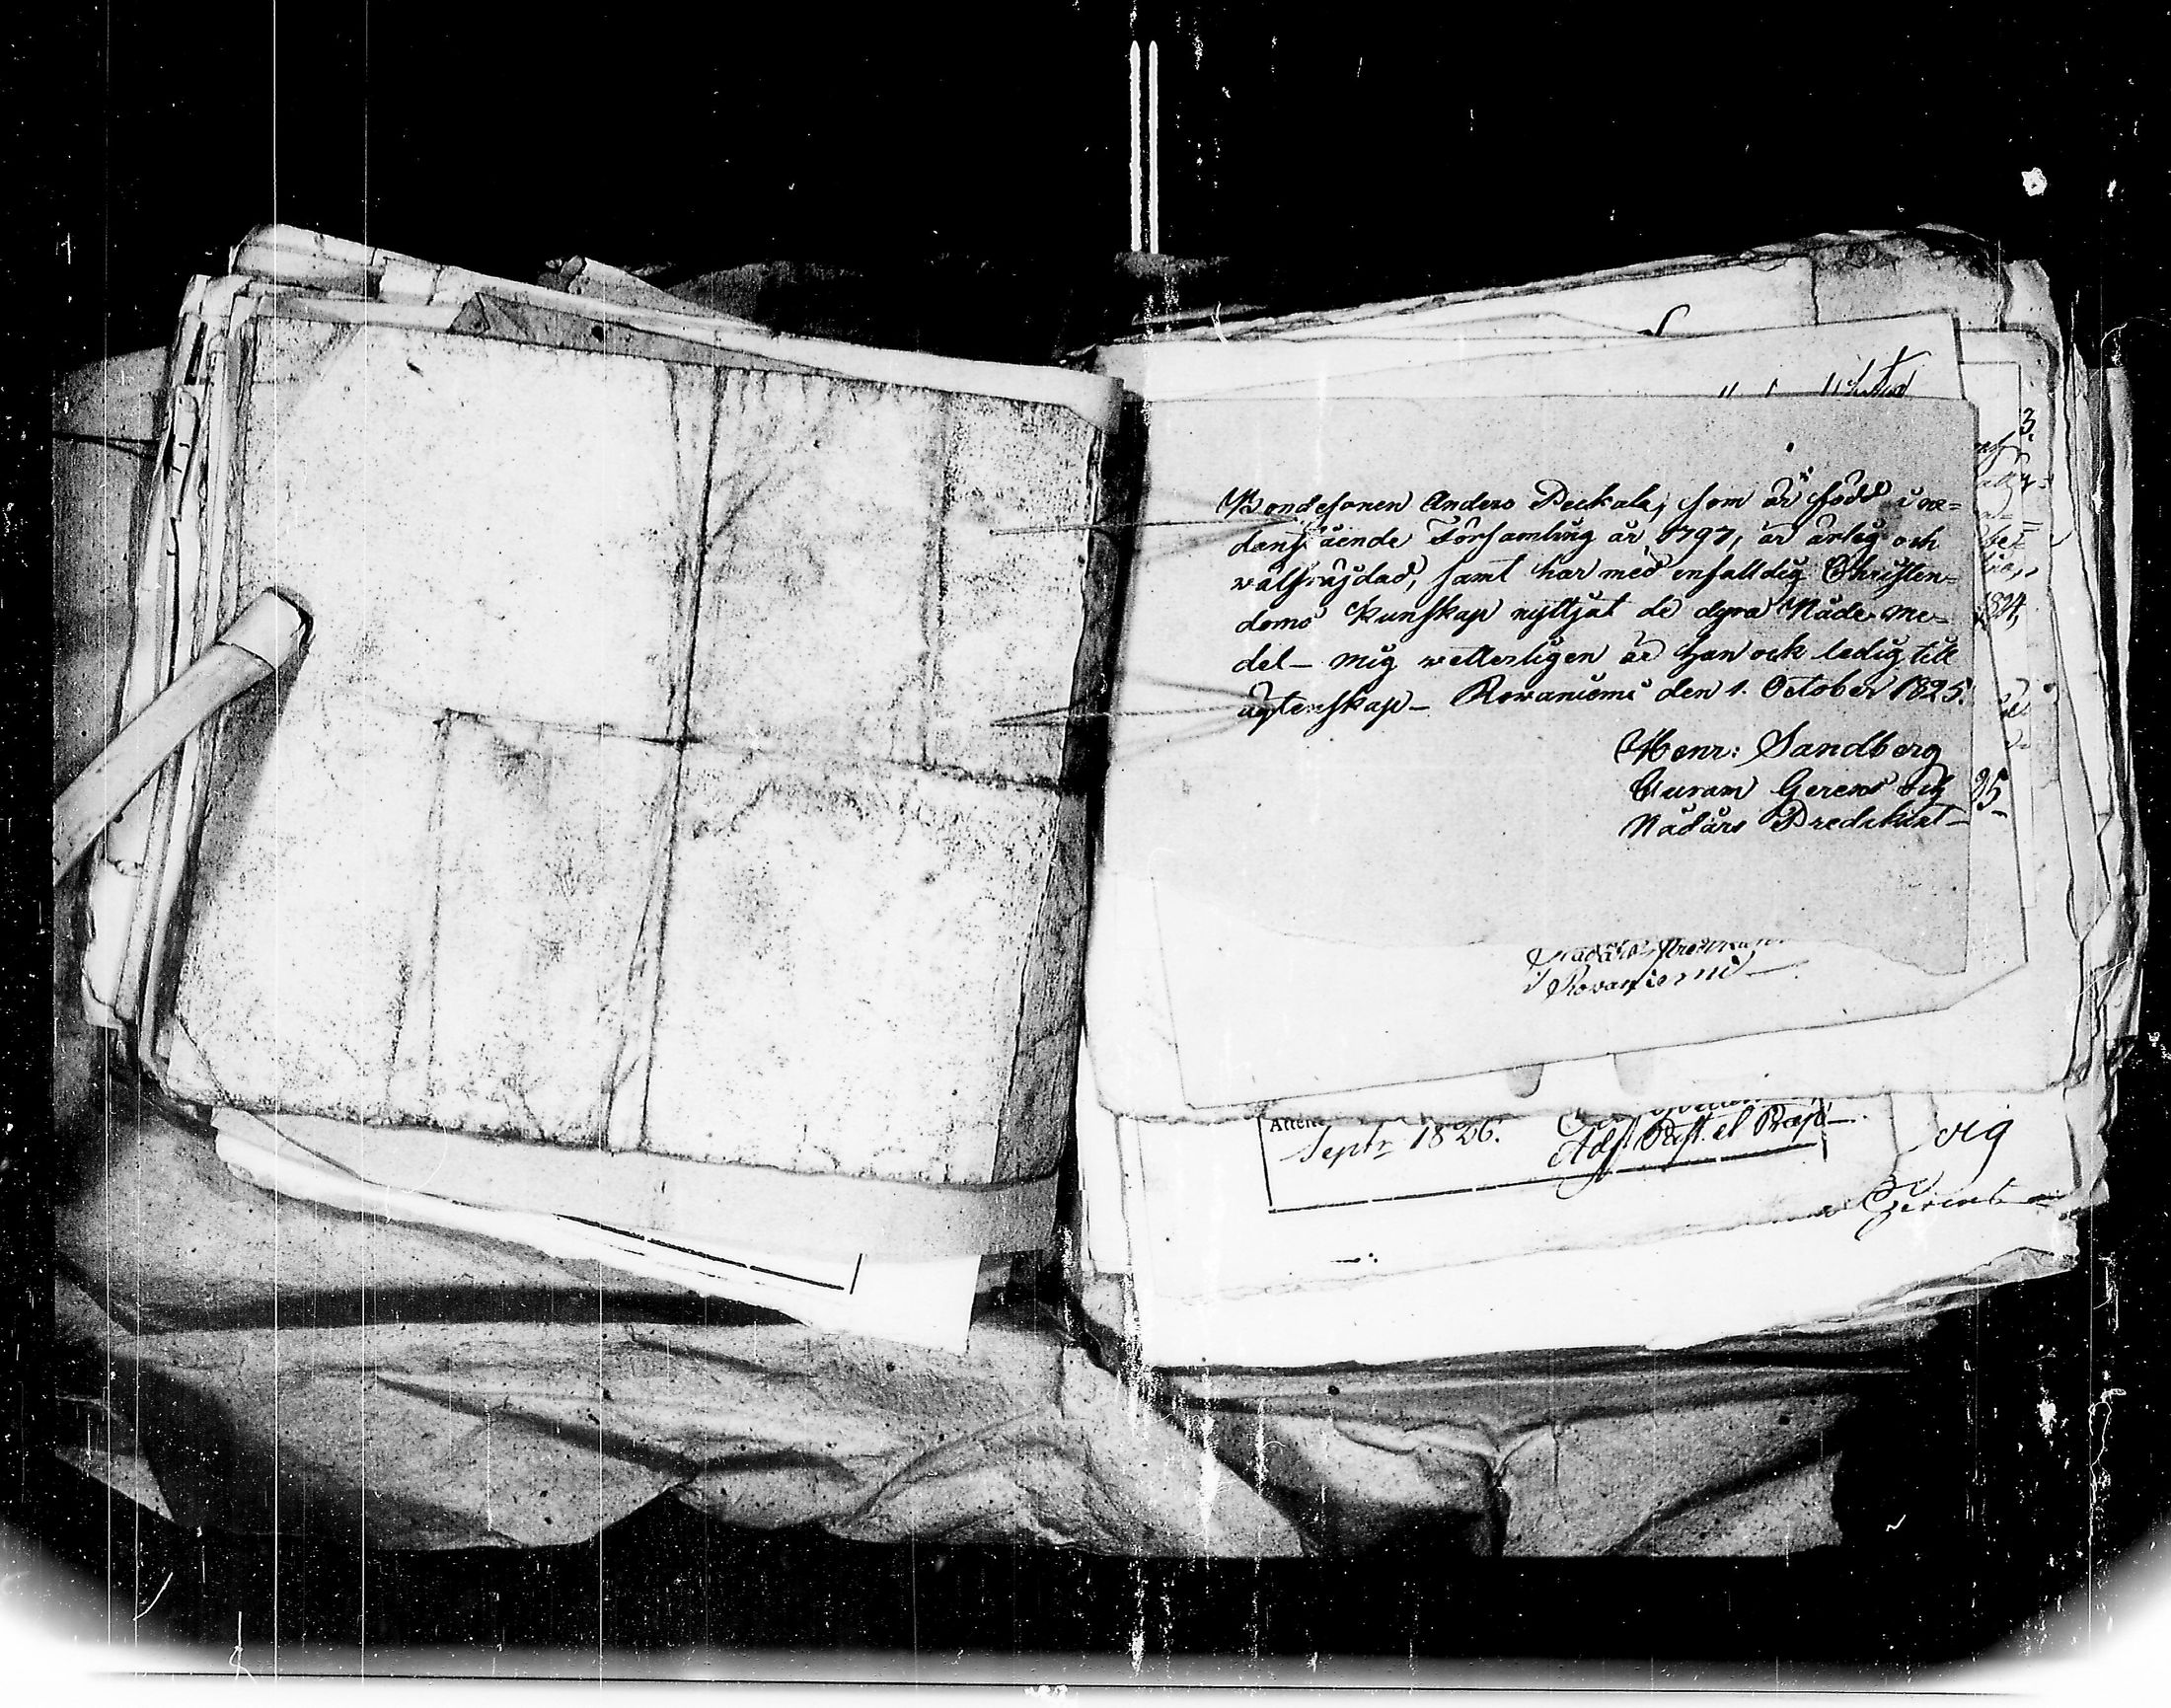 Bondesonen Anders Peckala, som är född i ne=
danstående Församling år 1797, är ärlig och
wälfräjdad, samt har med enfalldig Christen=
doms Kunskap nyttjat de dyra Nåde me=
del – mig vetterligen är han ock ledig till
ägtenskap – Rovaniemi den 1. October 1825.
Henr: Sandberg
Curam Gerens och
Nådårs Predikant –
i Rovaniemi –
Septr 1826.
Adj. Past. et Præp –
vig
3.
1824,
25 –